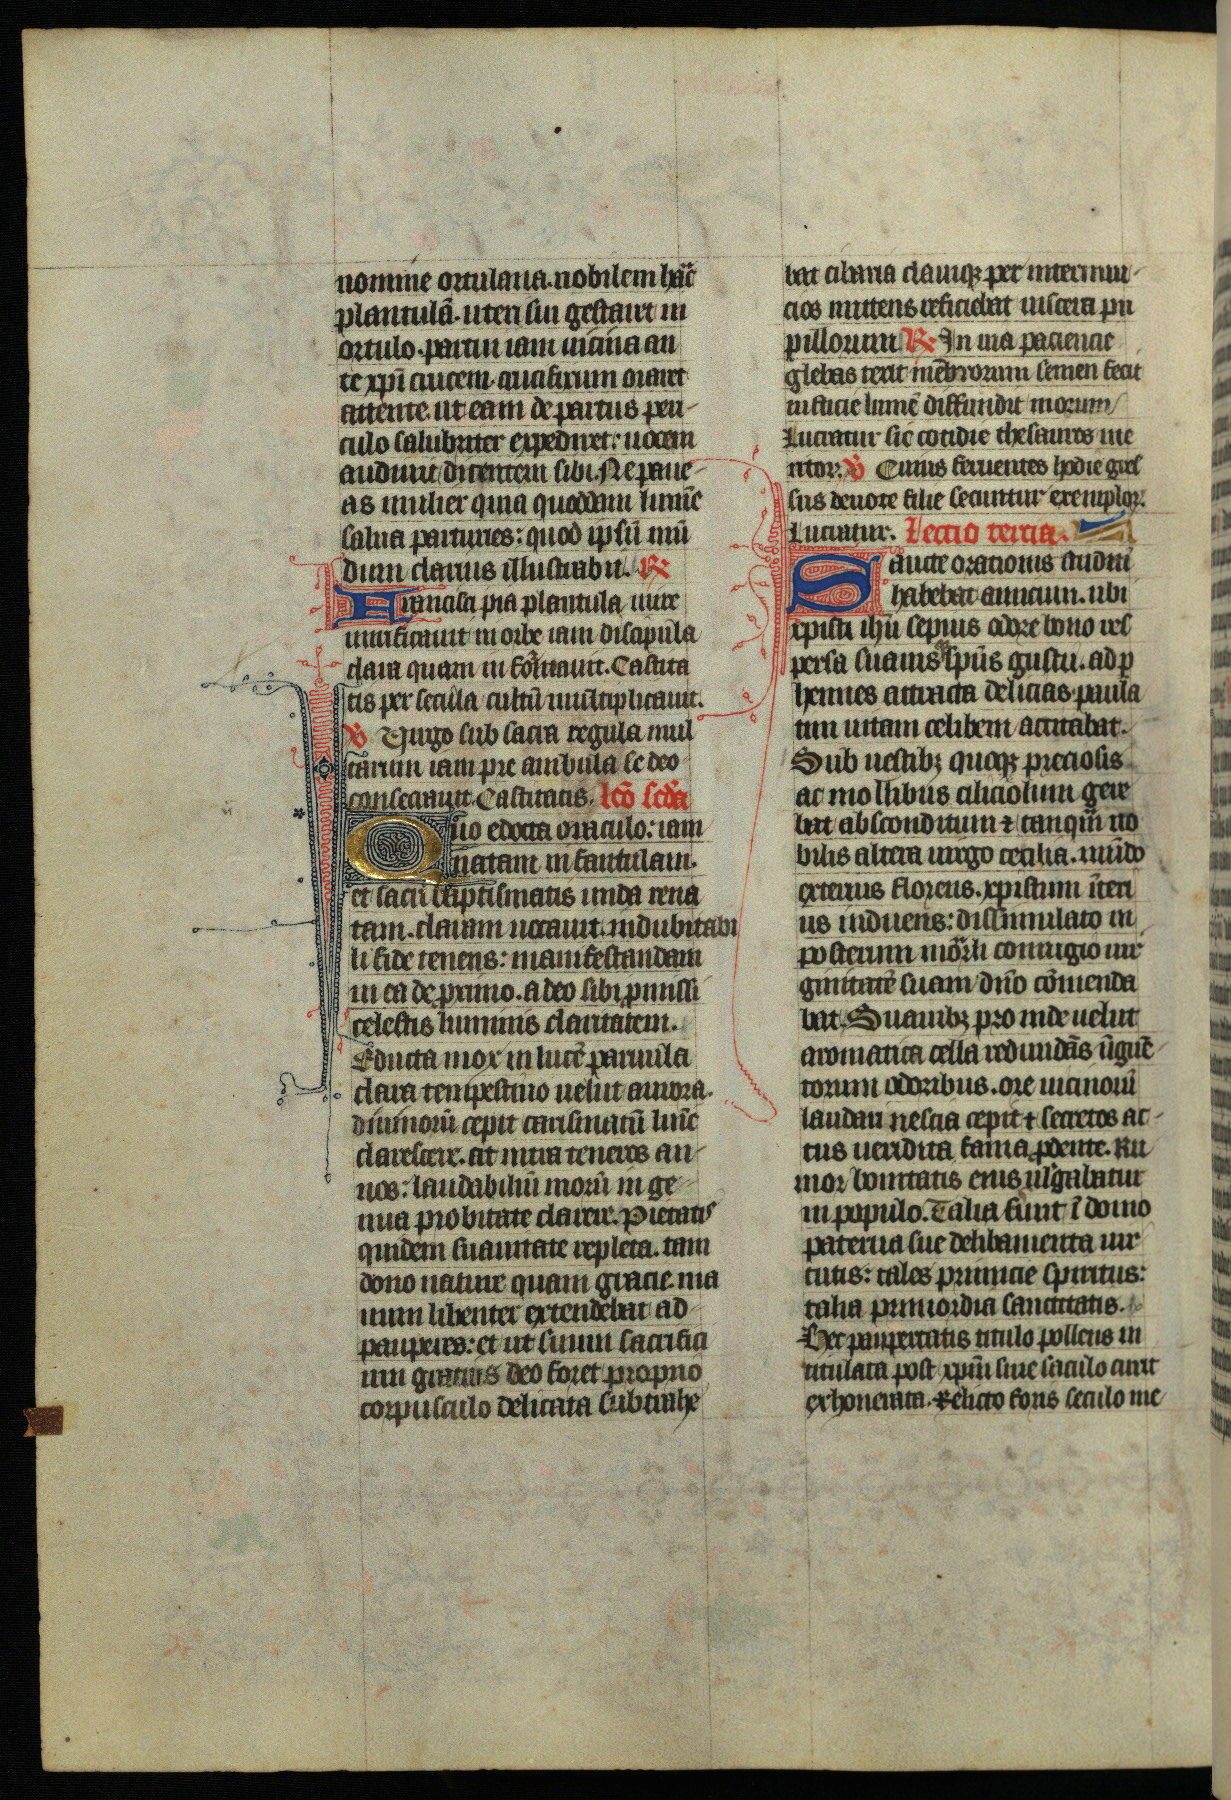 nomine ortulana. nobilem hāc
plantulā. uteri sui gestaret in
ortulo. partui iam uicina an
te xp̄i crucem. crucifixum oraret
attente. ut eam de partus peri-
culo salubriter expediret: uocem
audiuit dicentem sibi. Ne paue-
as mulier quia quoddam lumē
salua parturies: quod ipsū mū
dum clarius illustrabit. R̷
Francisci pia plantula mire
uiuificauit in orbe iam discipula
clara quam in formauit. Castita
tis per secula cultū multiplicauit.
V̷ Virgo sub sacra regula mul
tarum iam pre ambula se deo
consecrauit. Castitatis. lcō scd̄a
Quo edocta oraculo: iam
natam in fantulam.
et sacri baptismatis unda rena
tam. claram uocauit. indubitabi
li fide tenens: manifestandam
in ea de ꝓximo. a deo sibi ꝓmissi
celestis luminis claritatem.
Educta mox in lucē paruula
clara tempestiuo uelut aurora.
diuinorū cepit carismatū hinc
clarescere. at intra teneros an-
nos: laudabiliū morū in ge
nua probitate clarere. Pietatis
quidem suauitate repleta. tam
dono nature quam gracie. ma
num libenter extendebat ad
pauperes: et ut suum sacrifici
um gratius deo foret proprio
corpusculo delicata subtrahe
bat cibaria clamqꝫ per internun-
cios mittens reficiebat uiscera pu
pillorum R̷ In uia paciencie
glebas terit mēbrorum semen serit
iusticie lumē diffundit morum
Lucratur sic cotidie thesauros me
ntor. V̷ Cuius feruentes hodie gres
sus deuote filie secuntur exemplor.
Lucratur. Lectio tercia.
Sancte orationis studiū
habebat amicum. ubi
xpisti ihū sepius odore bono res
persa suauis sp̄us gustu. ad ꝑ
hennes attracta delicias. paula
tim uitam celibem actitabat.
Sub uestibꝫ quoqꝫ preciosis
ac mollibus ciliciolum gere
bat absconditum ⁊ tanqm̄ no
bilis altera uirgo cecilia. mūdo
exterius florens. xpistum īteri
us induens: dissimulato in
posterum mortali coniugio uir
ginitatē suam dn̄o cōmenda
bat. Suauibꝫ pro inde uelut
aromatica cella redundās ūguē-
torum odoribus. ore uicinorū
laudari nescia cepit ⁊ secretos ac-
tus ueridica fama ꝓdente. Ru
mor bonitatis eius ulgabatur
in populo. Talia sunt ī domo
paterna sue delibamenta uir
tutis: tales primicie spiritus:
talia primordia sanctitatis.
Hec paupertatis titulo pollens in
titulata post xpm̄ siue saculo currit
exhonerata. Relicto foris seculo me